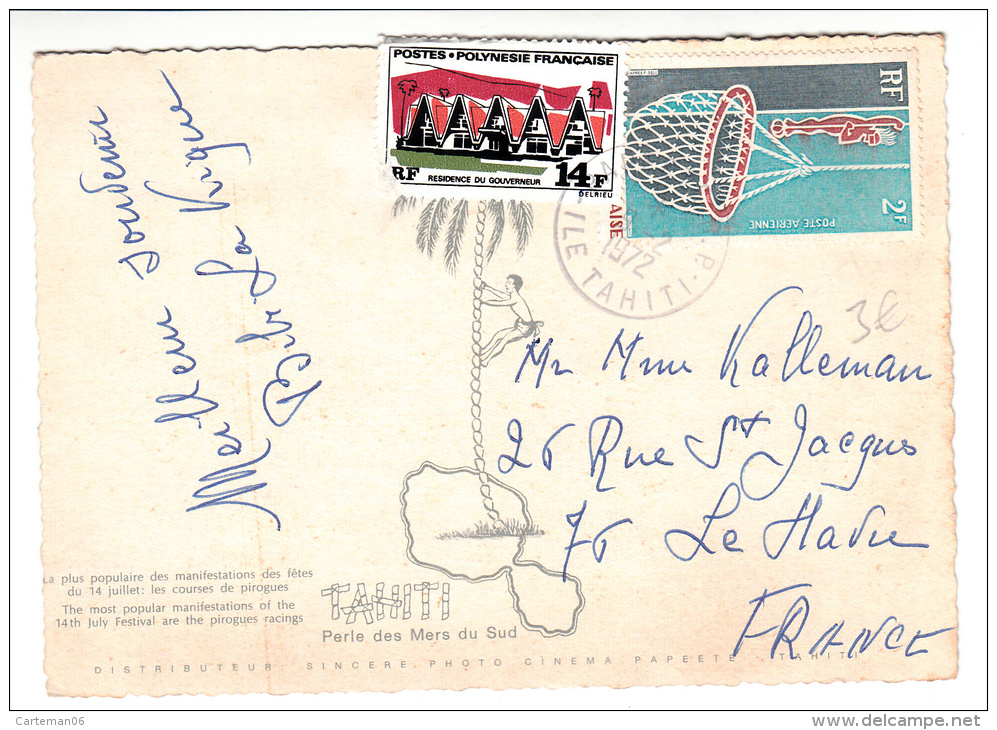 POSTES • POLYNESIE FRANÇAISE
RF
RESIDENCE DU GOUVERNEUR
14F
DELRIEU
RF
POSTE AÉRIENNE
2F
AISE
1972
P.
ILE TAHITI
3€
Meilleur souvenir
La
Mr Mme Kalleman
26 Rue St Jacques
76 Le Havre
FRANCE
La plus populaire des manifestations des fêtes
du 14 juillet: les courses de pirogues
The most popular manifestations of the
14th July Festival are the pirogues racings
TAHITI
Perle des Mers du Sud
DISTRIBUTEUR: SINCERE PHOTO CINEMA PAPEETE - TAHITI
Carteman06
www.delcampe.net